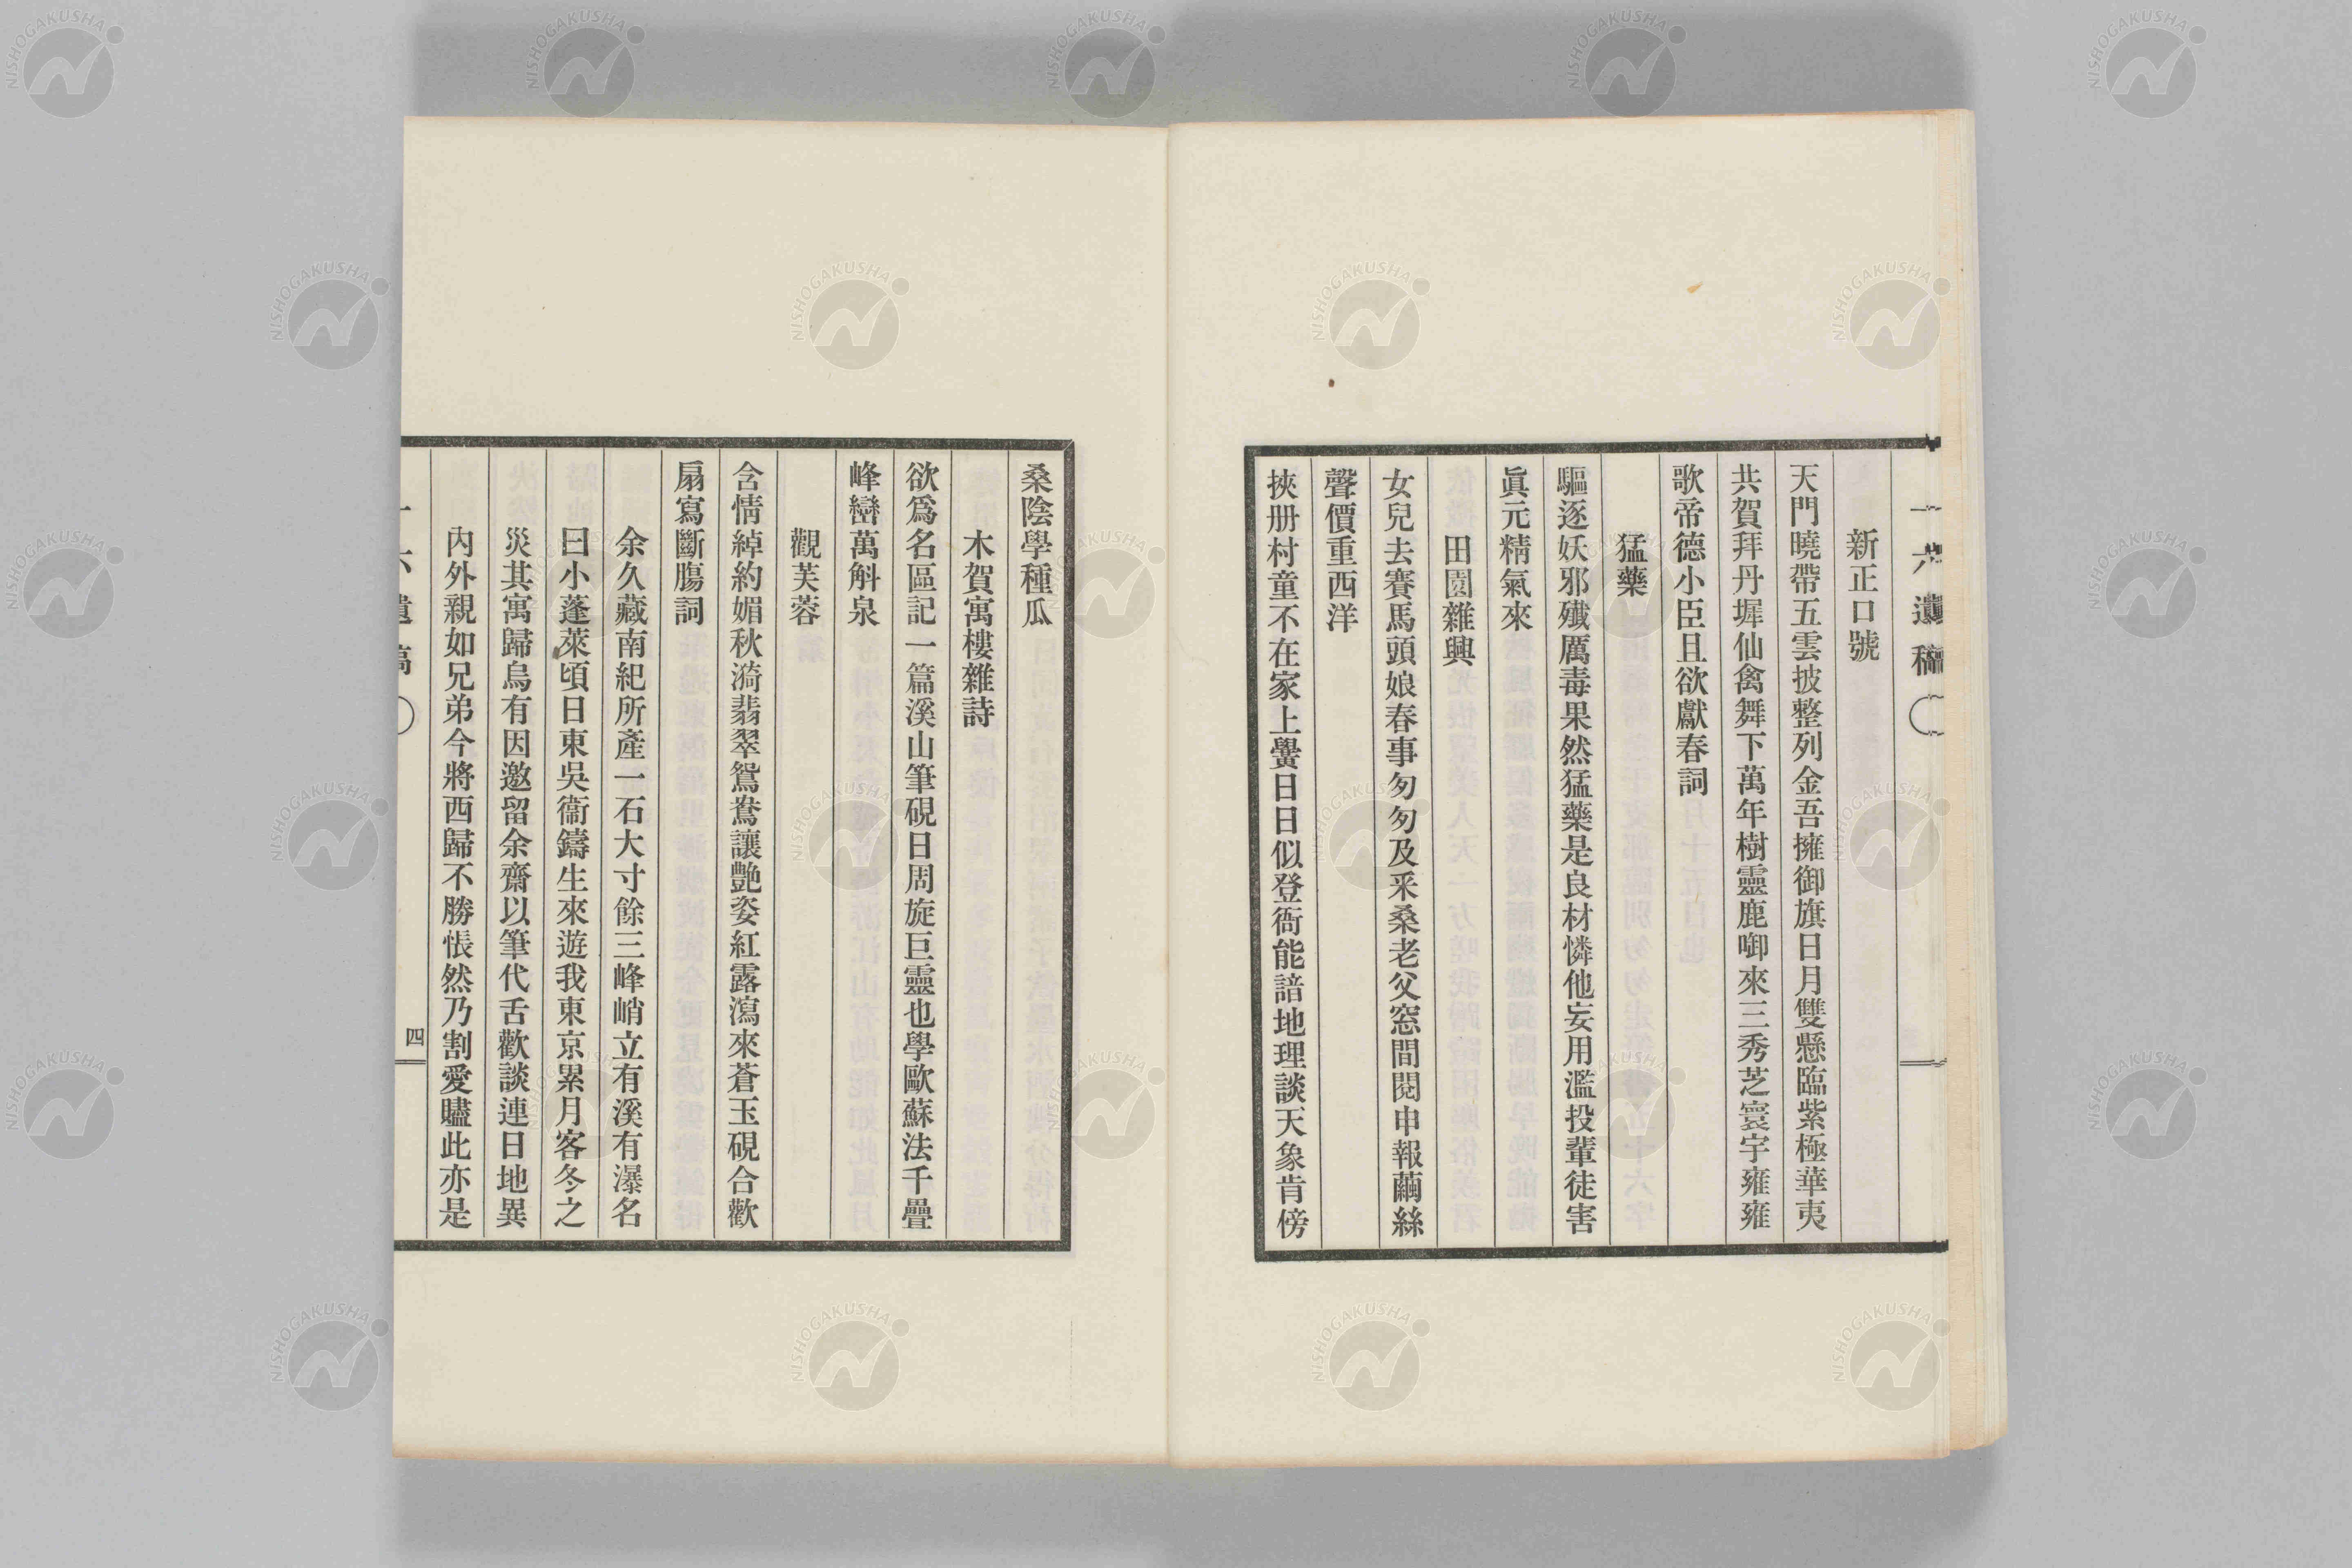 一六遺稿
新正口號
天門曉帶五雲披整列金吾擁御旗日月雙懸臨紫極華夷
共賀拜丹墀仙禽舞下萬年樹靈鹿啣來三秀芝寰宇雍雍
歌帝德小臣且欲獻春詞
猛藥
驅逐妖邪殲厲毒果然猛藥是良材憐他妄用濫投輩徒害
眞元精氣來
田園雜興
女兒去賽馬頭娘春事匆匆及采桑老父窓間閱申報繭絲
聲價重西洋
挾册村童不在家上黌日日似登衙能諳地理談天象肯傍
桑陰學種瓜
木賀寓樓雜詩
欲爲名區記一篇溪山筆硯日周旋巨靈也學歐蘇法千疊
峰巒萬斛泉
觀芙蓉
含情綽約媚秋漪翡翠鴛鴦讓艶姿紅露瀉來蒼玉硯合歡
扇寫斷膓詞
余久藏南紀所產一石大寸餘三峰峭立有溪有瀑名
曰小蓬萊頃日東吳衞鑄生來遊我東京累月客冬之
災其寓歸烏有因邀留余齋以筆代舌歡談連日地異
內外親如兄弟今將西歸不勝悵然乃割愛贐此亦是
一六遺稿
四
NISHOGAKUSHA